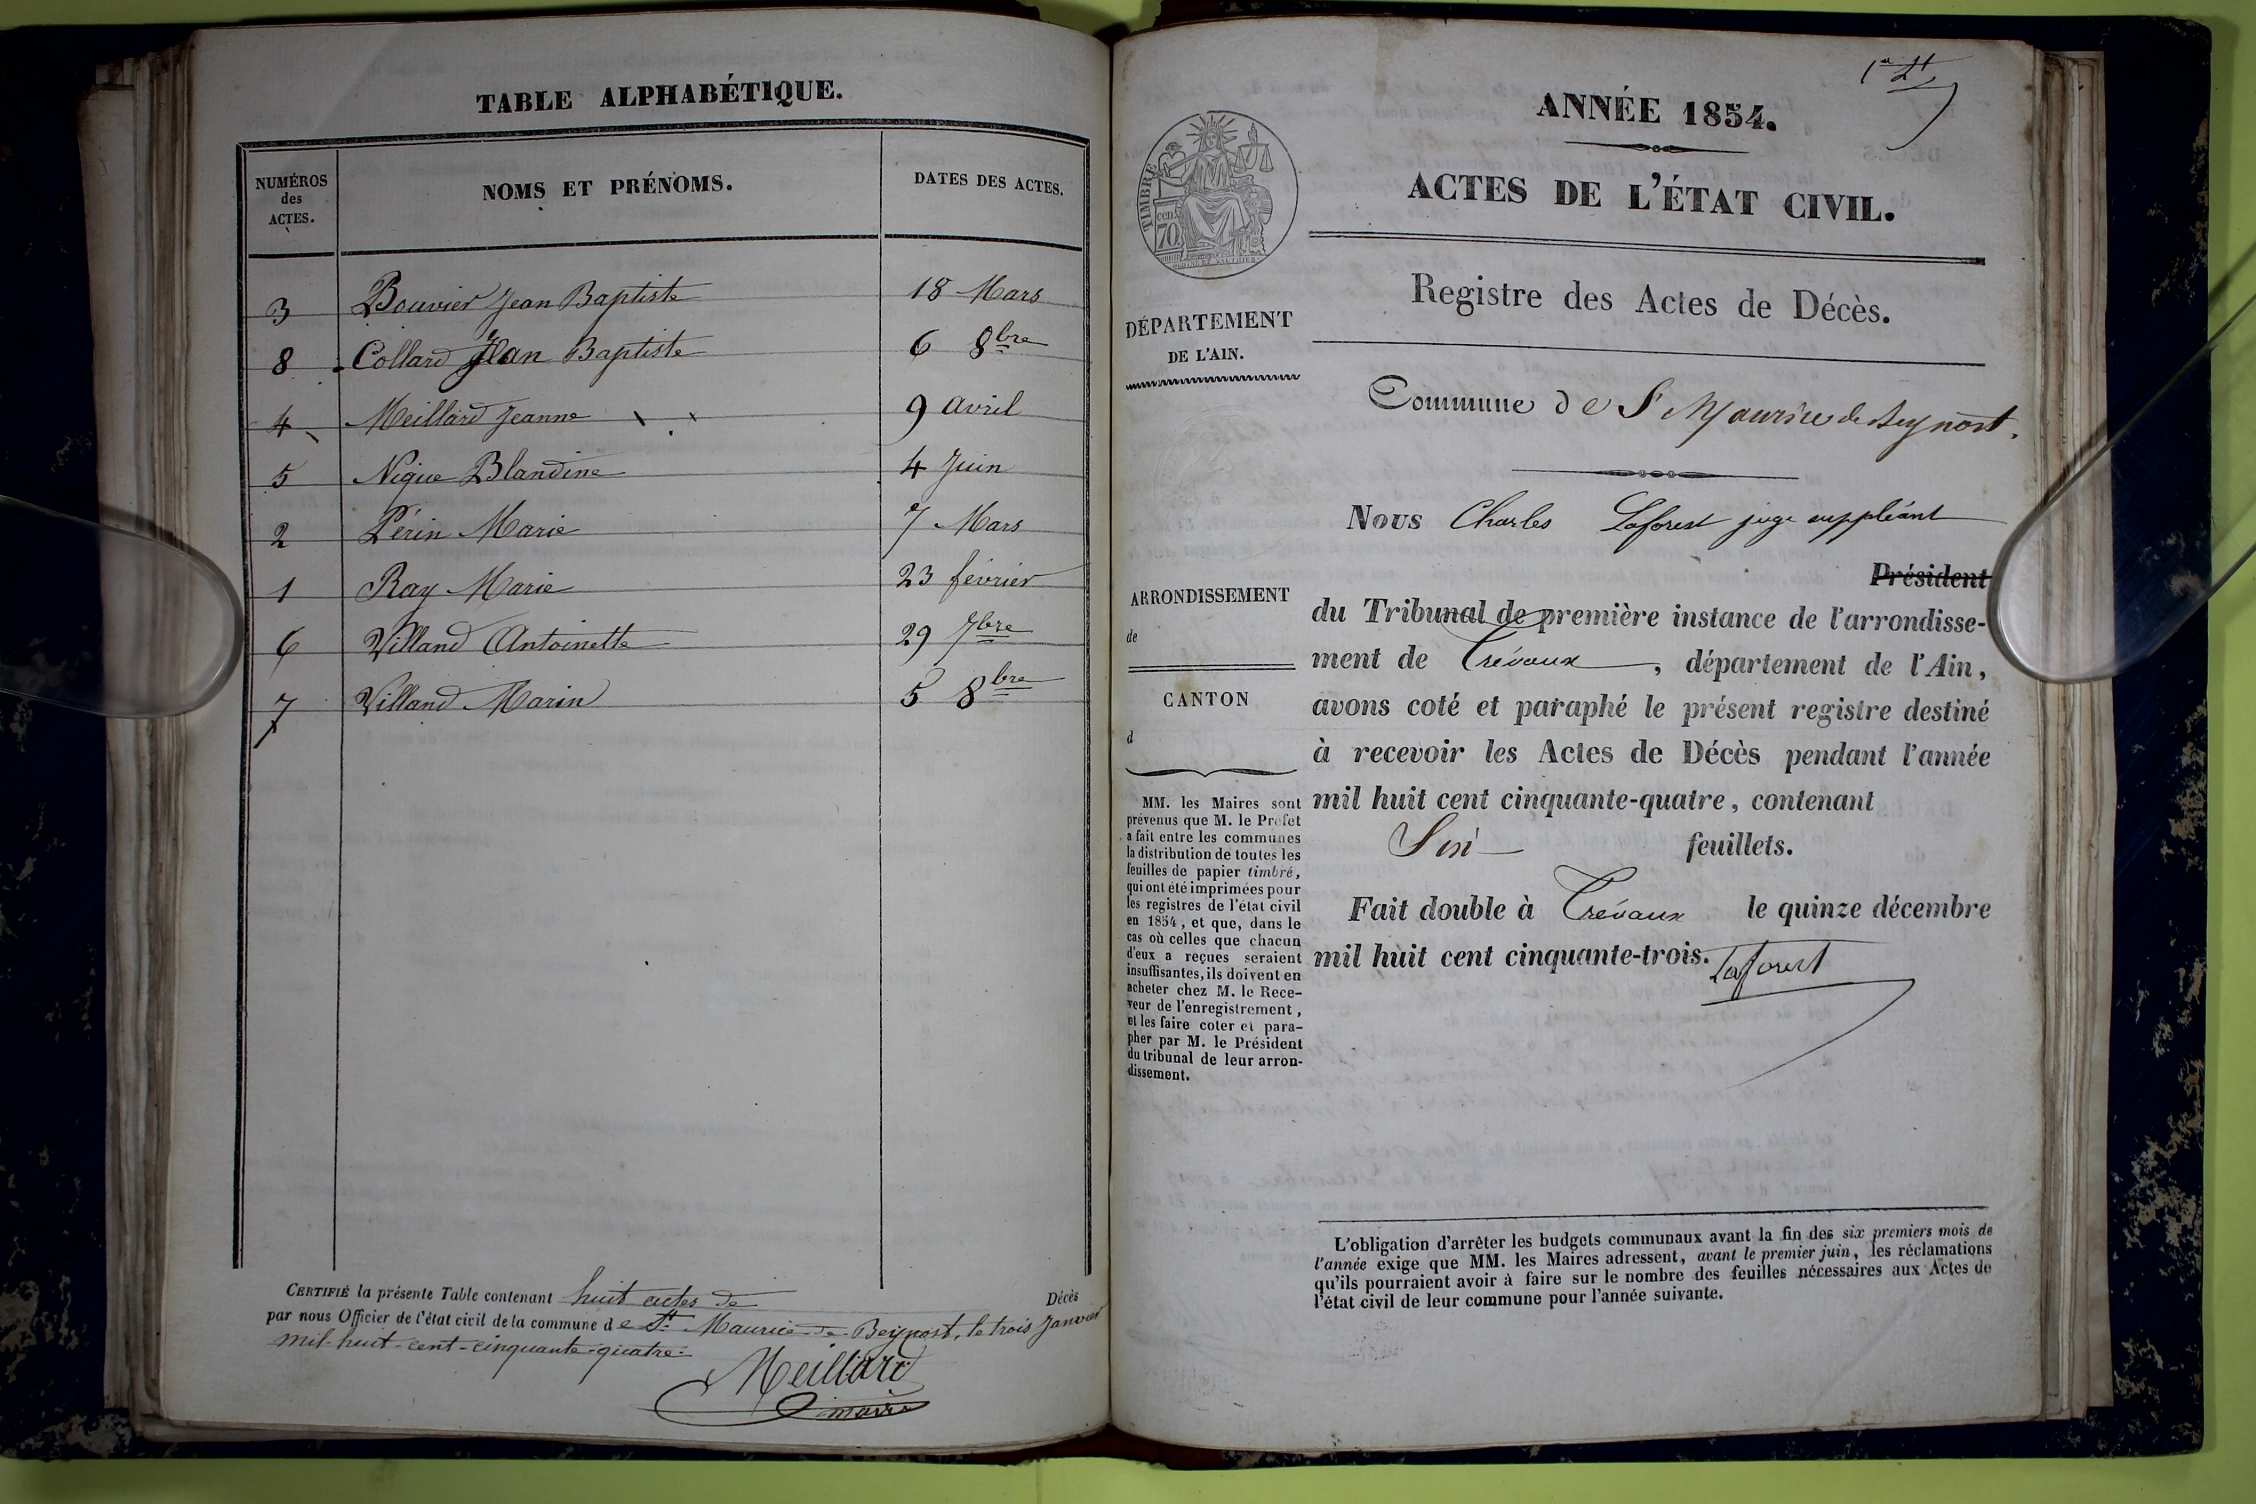 TABLE ALPHABÉTIQUE.
NUMÉROS
des
ACTES.
NOMS ET PRÉNOMS.
DATES DES ACTES.
3 Bouvier Jean Baptiste 18 Mars
8 Collard Jean Baptiste 6 8bre
4 Meillard Jeanne 9 avril
5 Nique Blandine 4 Juin
2 Périn Marie 7 Mars
1 Ray Marie 23 février
6 Villand Antoinette 29 7bre
7 Villand Marin 5 8bre
CERTIFIÉ la présente Table contenant huit actes de Décès
par nous Officier de l'état civil de la commune de St. Maurice de Beynost, le trois Janvier
mil-huit-cent-cinquante-quatre.
Meillard
maire
1er
ANNÉE 1854.
ACTES DE L'ÉTAT CIVIL.
TIMBRE
cen.
70
Registre des Actes de Décès.
DÉPARTEMENT
DE L'AIN.
Commune de St Maurice de Beynost.
ARRONDISSEMENT
de
CANTON
d
MM. les Maires sont
prévenus que M. le Préfet
a fait entre les communes
la distribution de toutes les
feuilles de papier timbré,
qui ont été imprimées pour
les registres de l'état civil
en 1854, et que, dans le
cas où celles que chacun
d'eux a reçues seraient
insuffisantes, ils doivent en
acheter chez M. le Rece-
veur de l'enregistrement,
et les faire coter et para-
pher par M. le Président
du tribunal de leur arron-
dissement.
Nous Charles Laforest juge suppléant
Président
du Tribunal de première instance de l'arrondisse-
ment de Trévoux, département de l'Ain,
avons coté et paraphé le présent registre destiné
à recevoir les Actes de Décès pendant l'année
mil huit cent cinquante-quatre, contenant
Six feuillets.
Fait double à Trévoux le quinze décembre
mil huit cent cinquante-trois.
Laforest
L'obligation d'arrêter les budgets communaux avant la fin des six premiers mois de
l'année exige que MM. les Maires adressent, avant le premier juin, les réclamations
qu'ils pourraient avoir à faire sur le nombre des feuilles nécessaires aux Actes de
l'état civil de leur commune pour l'année suivante.